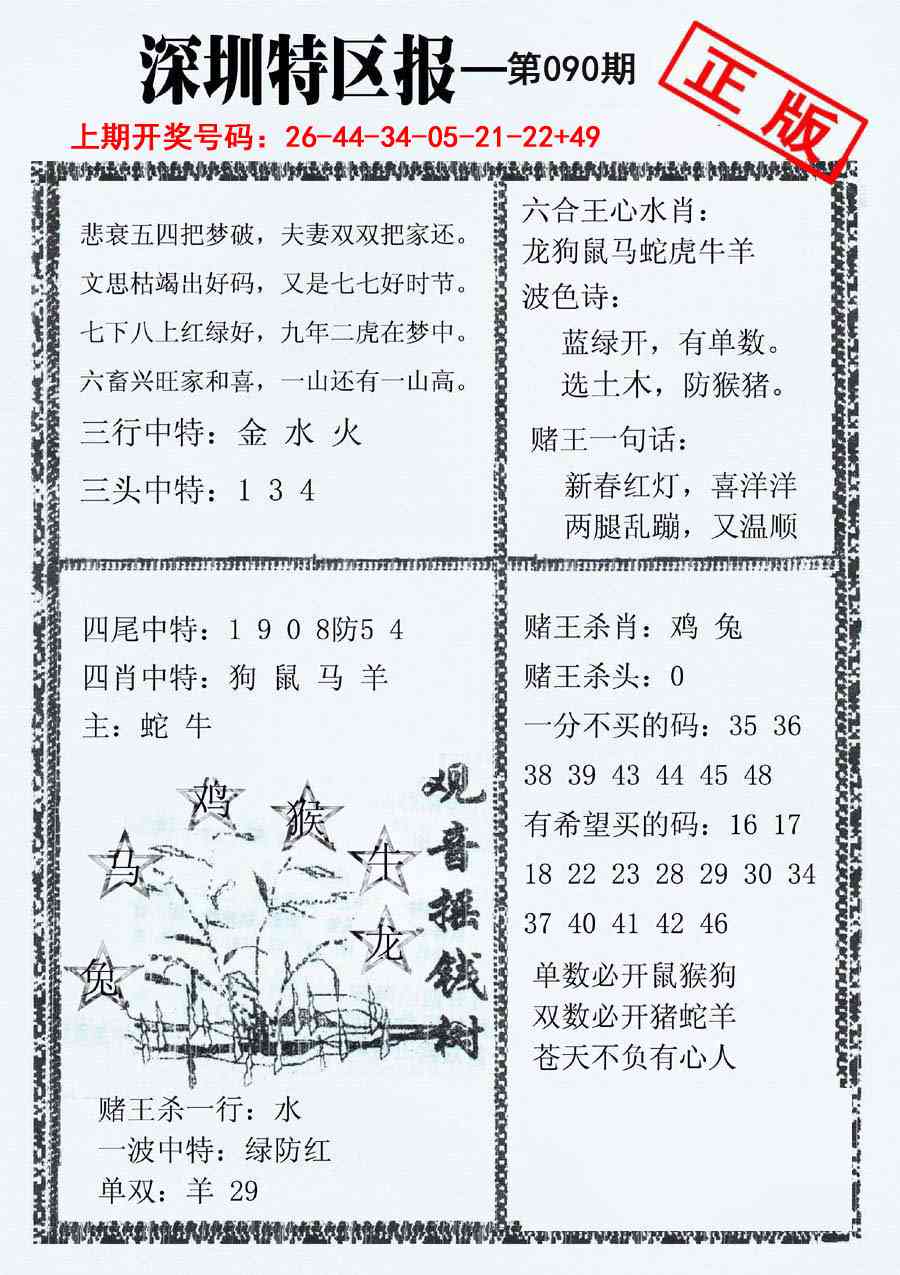 深圳特区报—第090期
正版
上期开奖号码：26-44-34-05-21-22+49
悲衰五四把梦破，夫妻双双把家还。
文思枯竭出好码，又是七七好时节。
七下八上红绿好，九年二虎在梦中。
六畜兴旺家和喜，一山还有一山高。
三行中特：金 水 火
三头中特：1 3 4
六合王心水肖：
龙狗鼠马蛇虎牛羊
波色诗：
蓝绿开，有单数。
选土木，防猴猪。
赌王一句话：
新春红灯，喜洋洋
两腿乱蹦，又温顺
四尾中特：1 9 0 8防5 4
四肖中特：狗 鼠 马 羊
主：蛇 牛
鸡
猴
马
牛
龙
兔
观音摇钱树
赌王杀一行：水
一波中特：绿防红
单双：羊 29
赌王杀肖：鸡 兔
赌王杀头：0
一分不买的码：35 36
38 39 43 44 45 48
有希望买的码：16 17
18 22 23 28 29 30 34
37 40 41 42 46
单数必开鼠猴狗
双数必开猪蛇羊
苍天不负有心人